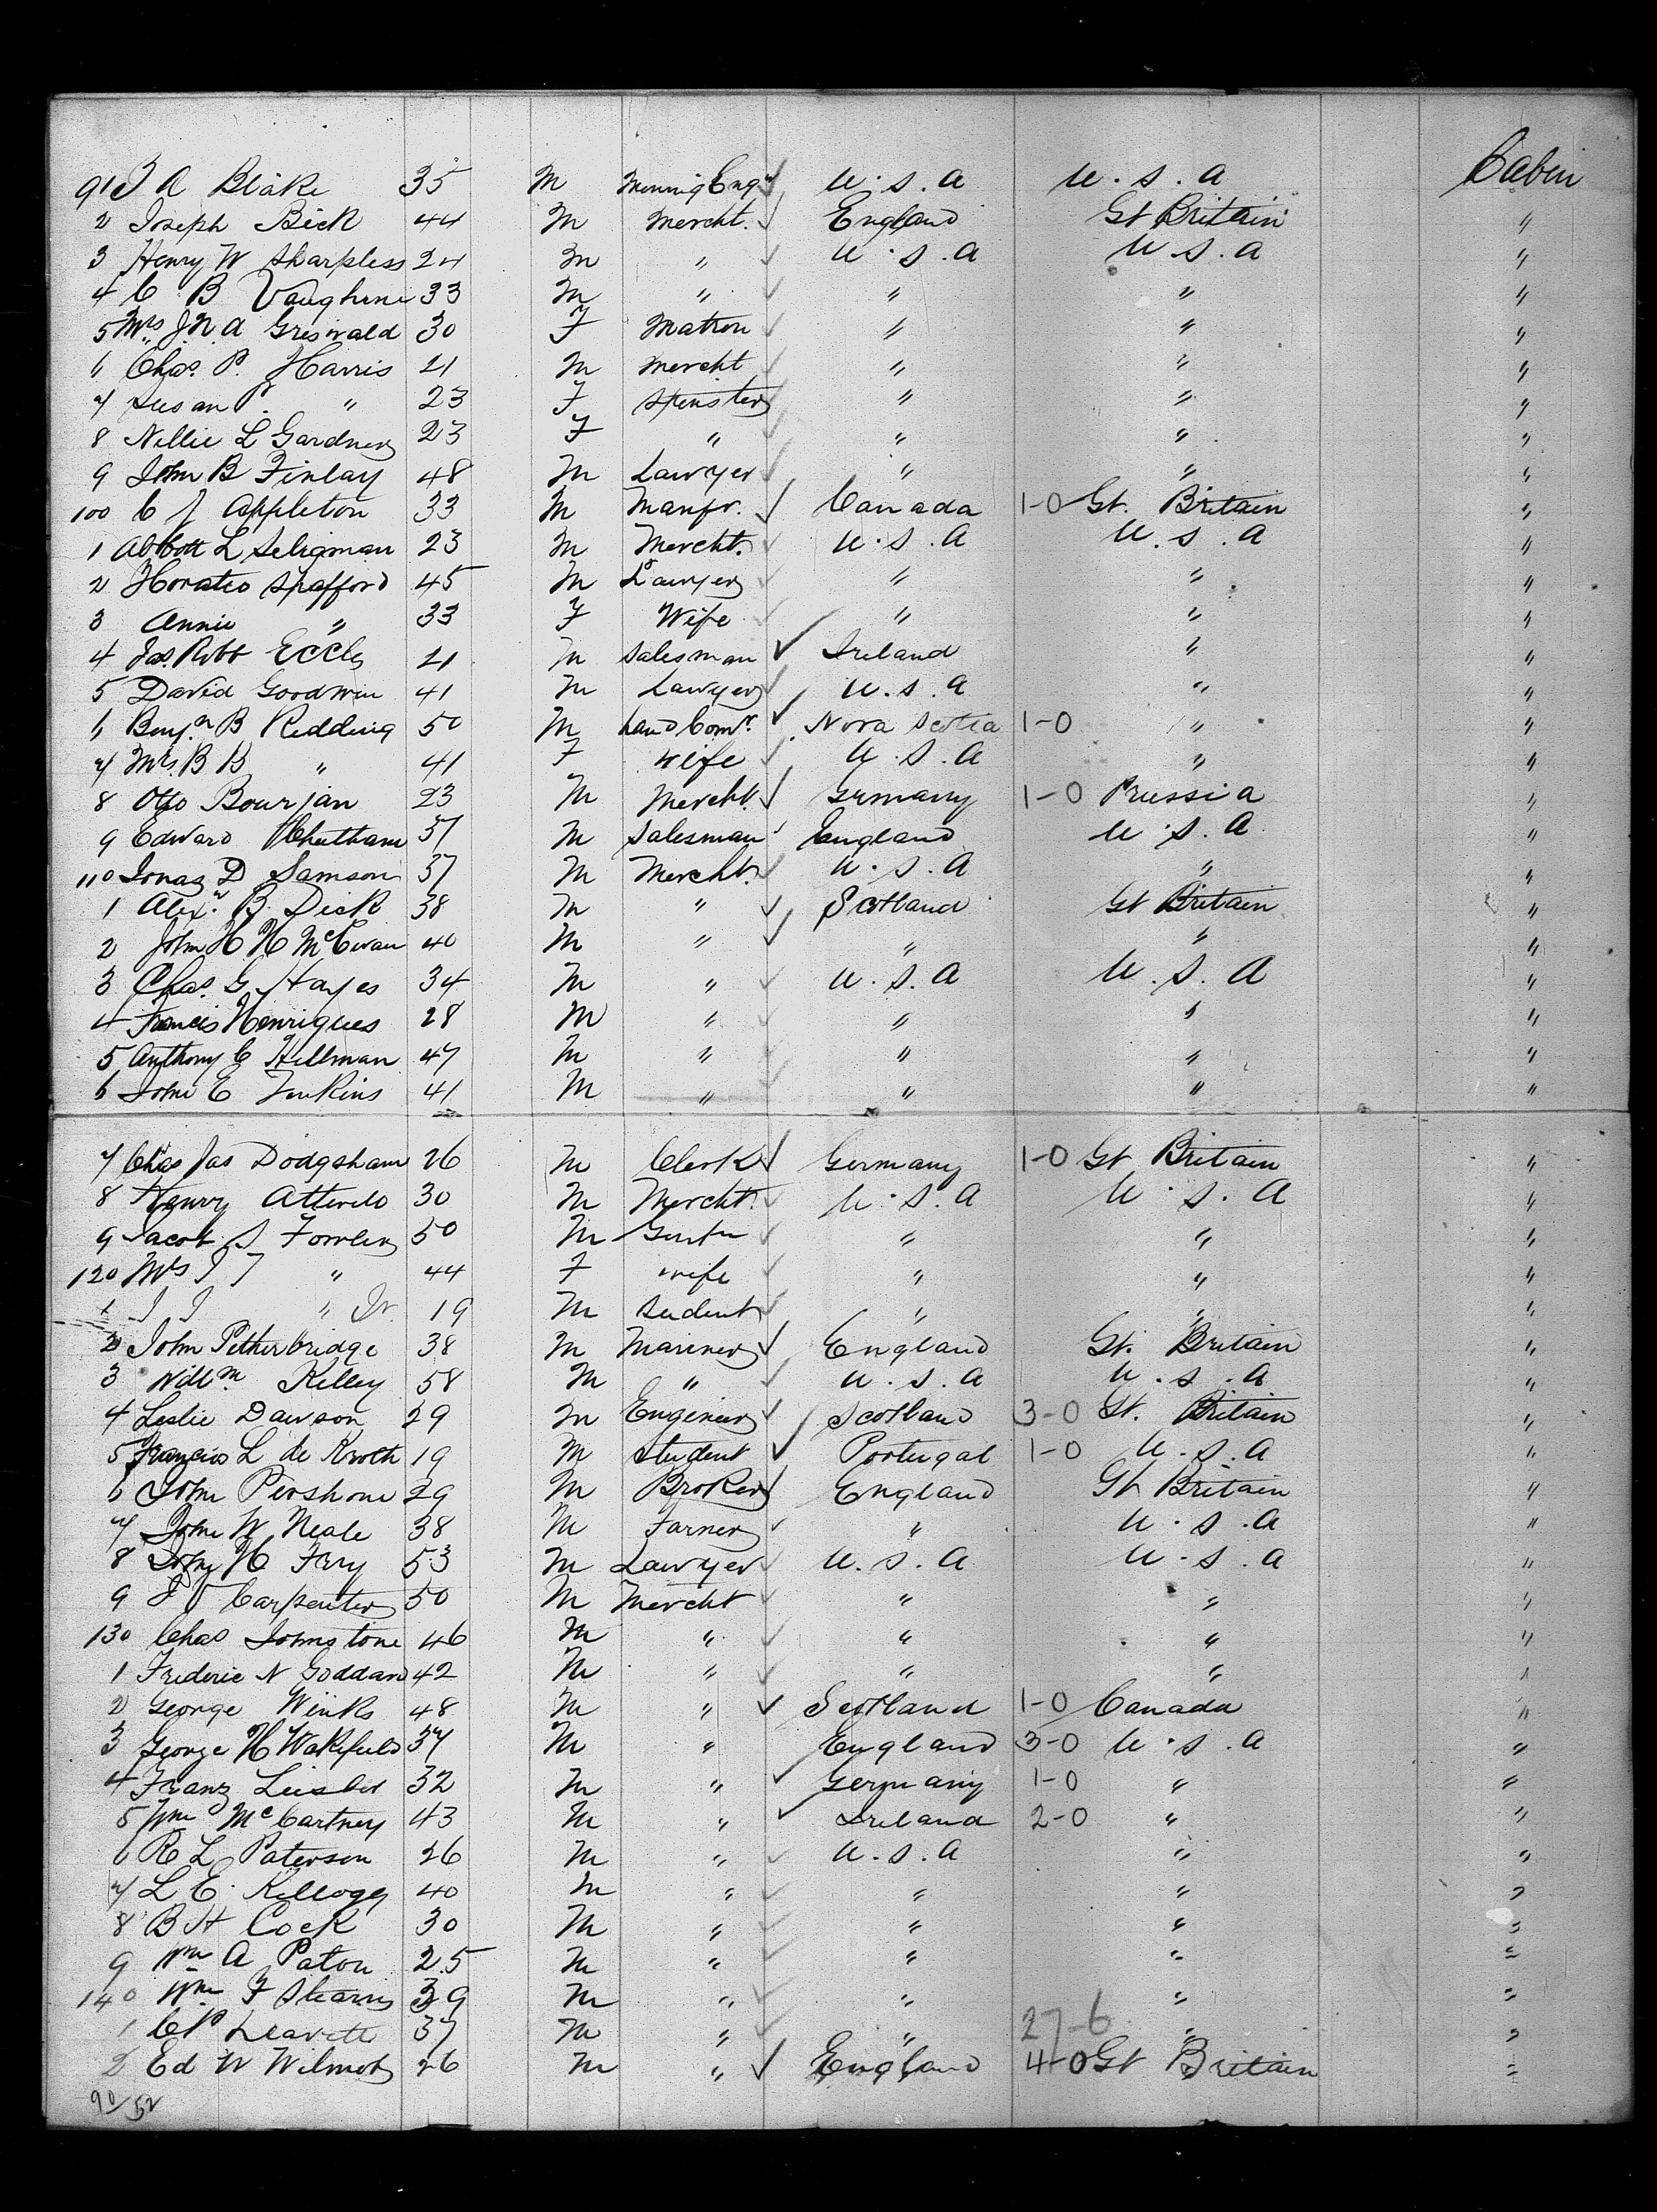 91 J A Blake 35 M Minning Engr U.S.A U.S.A Cabin
2 Joseph Beck 44 M Mercht. England Gt Britain "
3 Henry W Sharpless 24 M " U.S.A U.S.A "
4 C B Vaughune 33 M " " " "
5 Mrs J.N.A Griswald 30 F Matron " " "
6 Chas. P. Harris 21 M Mercht " " "
7 Susan P. " 23 F Spinster " " "
8 Nellie L Gardner 23 F " " " "
9 John B Finlay 48 M Lawyer " " "
100 C J Appleton 33 M Manfr. Canada 1-0 Gt. Britain "
1 Abbott L Seligman 23 M Mercht. U.S.A U.S.A "
2 Horatio Spafford 45 M Lawyer " " "
3 Annie " 33 F Wife " " "
4 Jas. Robt Eccles 21 M Salesman Ireland " "
5 David Goodwin 41 M Lawyer U.S.A " "
6 Benj.n B Redding 50 M Land Comr. Nova Scotia 1-0 " "
7 Mrs. B B " 41 F Wife U.S.A " "
8 Otto Bourjan 23 M Mercht. Germany 1-0 Prussia "
9 Edward Chutham 37 M Salesman England U.S.A "
110 Jonas D Samson 37 M Mercht. U.S.A " "
1 Alexr. B. Dick 38 M " Scotland Gt Britain "
2 John H H McEwan 40 M " " " "
3 Chas. G Hayes 34 M " U.S.A U.S.A "
4 Francis Henriques 28 M " " " "
5 Anthony C Hillman 47 M " " " "
6 John E Jenkins 41 M " " " "
7 Chas Jas Dodgsham 26 M Clerk Germany 1-0 Gt Britain "
8 Henry 30 M Mercht. U.S.A U.S.A "
9 Jacob S Fowler 50 M Gentn " " "
120 Mrs J J " 44 F Wife " " "
1 J J " Jr. 19 M Sudent " " "
2 John Petherbridge 38 M Mariner England Gt. Britain "
3 Willm Kelley 58 M " U.S.A U.S.A "
4 Leslie Dawson 29 M Engineer Scotland 3-0 Gt. Britain "
5 Francis L de 19 M Student Portugal 1-0 U.S.A "
6 John Pershone 29 M Broker England Gt Britain "
7 John W Neale 38 M Farmer " U.S.A "
8 John H Fry 53 M Lawyer U.S.A U.S.A "
9 J V Carpenter 50 M Mercht " " "
130 Chas Johnstone 46 M " " " "
1 Frederic N Goddard 42 M " " " "
2 George Winks 48 M " Scotland 1-0 Canada "
3 George H Wakefield 37 M " England 3-0 U.S.A "
4 Franz Leisler 32 M " Germany 1-0 " "
5 Wm McCartney 43 M " Ireland 2-0 " "
6 R L Paterson 26 M " U.S.A " "
7 L E. Kellogg 40 M " " " "
8 B H Cock 30 M " " " "
9 Wm A Paton 25 M " " " "
140 Wm F Stearns 39 M " " " "
1 C P Leavett 37 M " " 27-6 " "
2 Ed W Wilmot 26 M " England 4-0 Gt Britain "
90/52